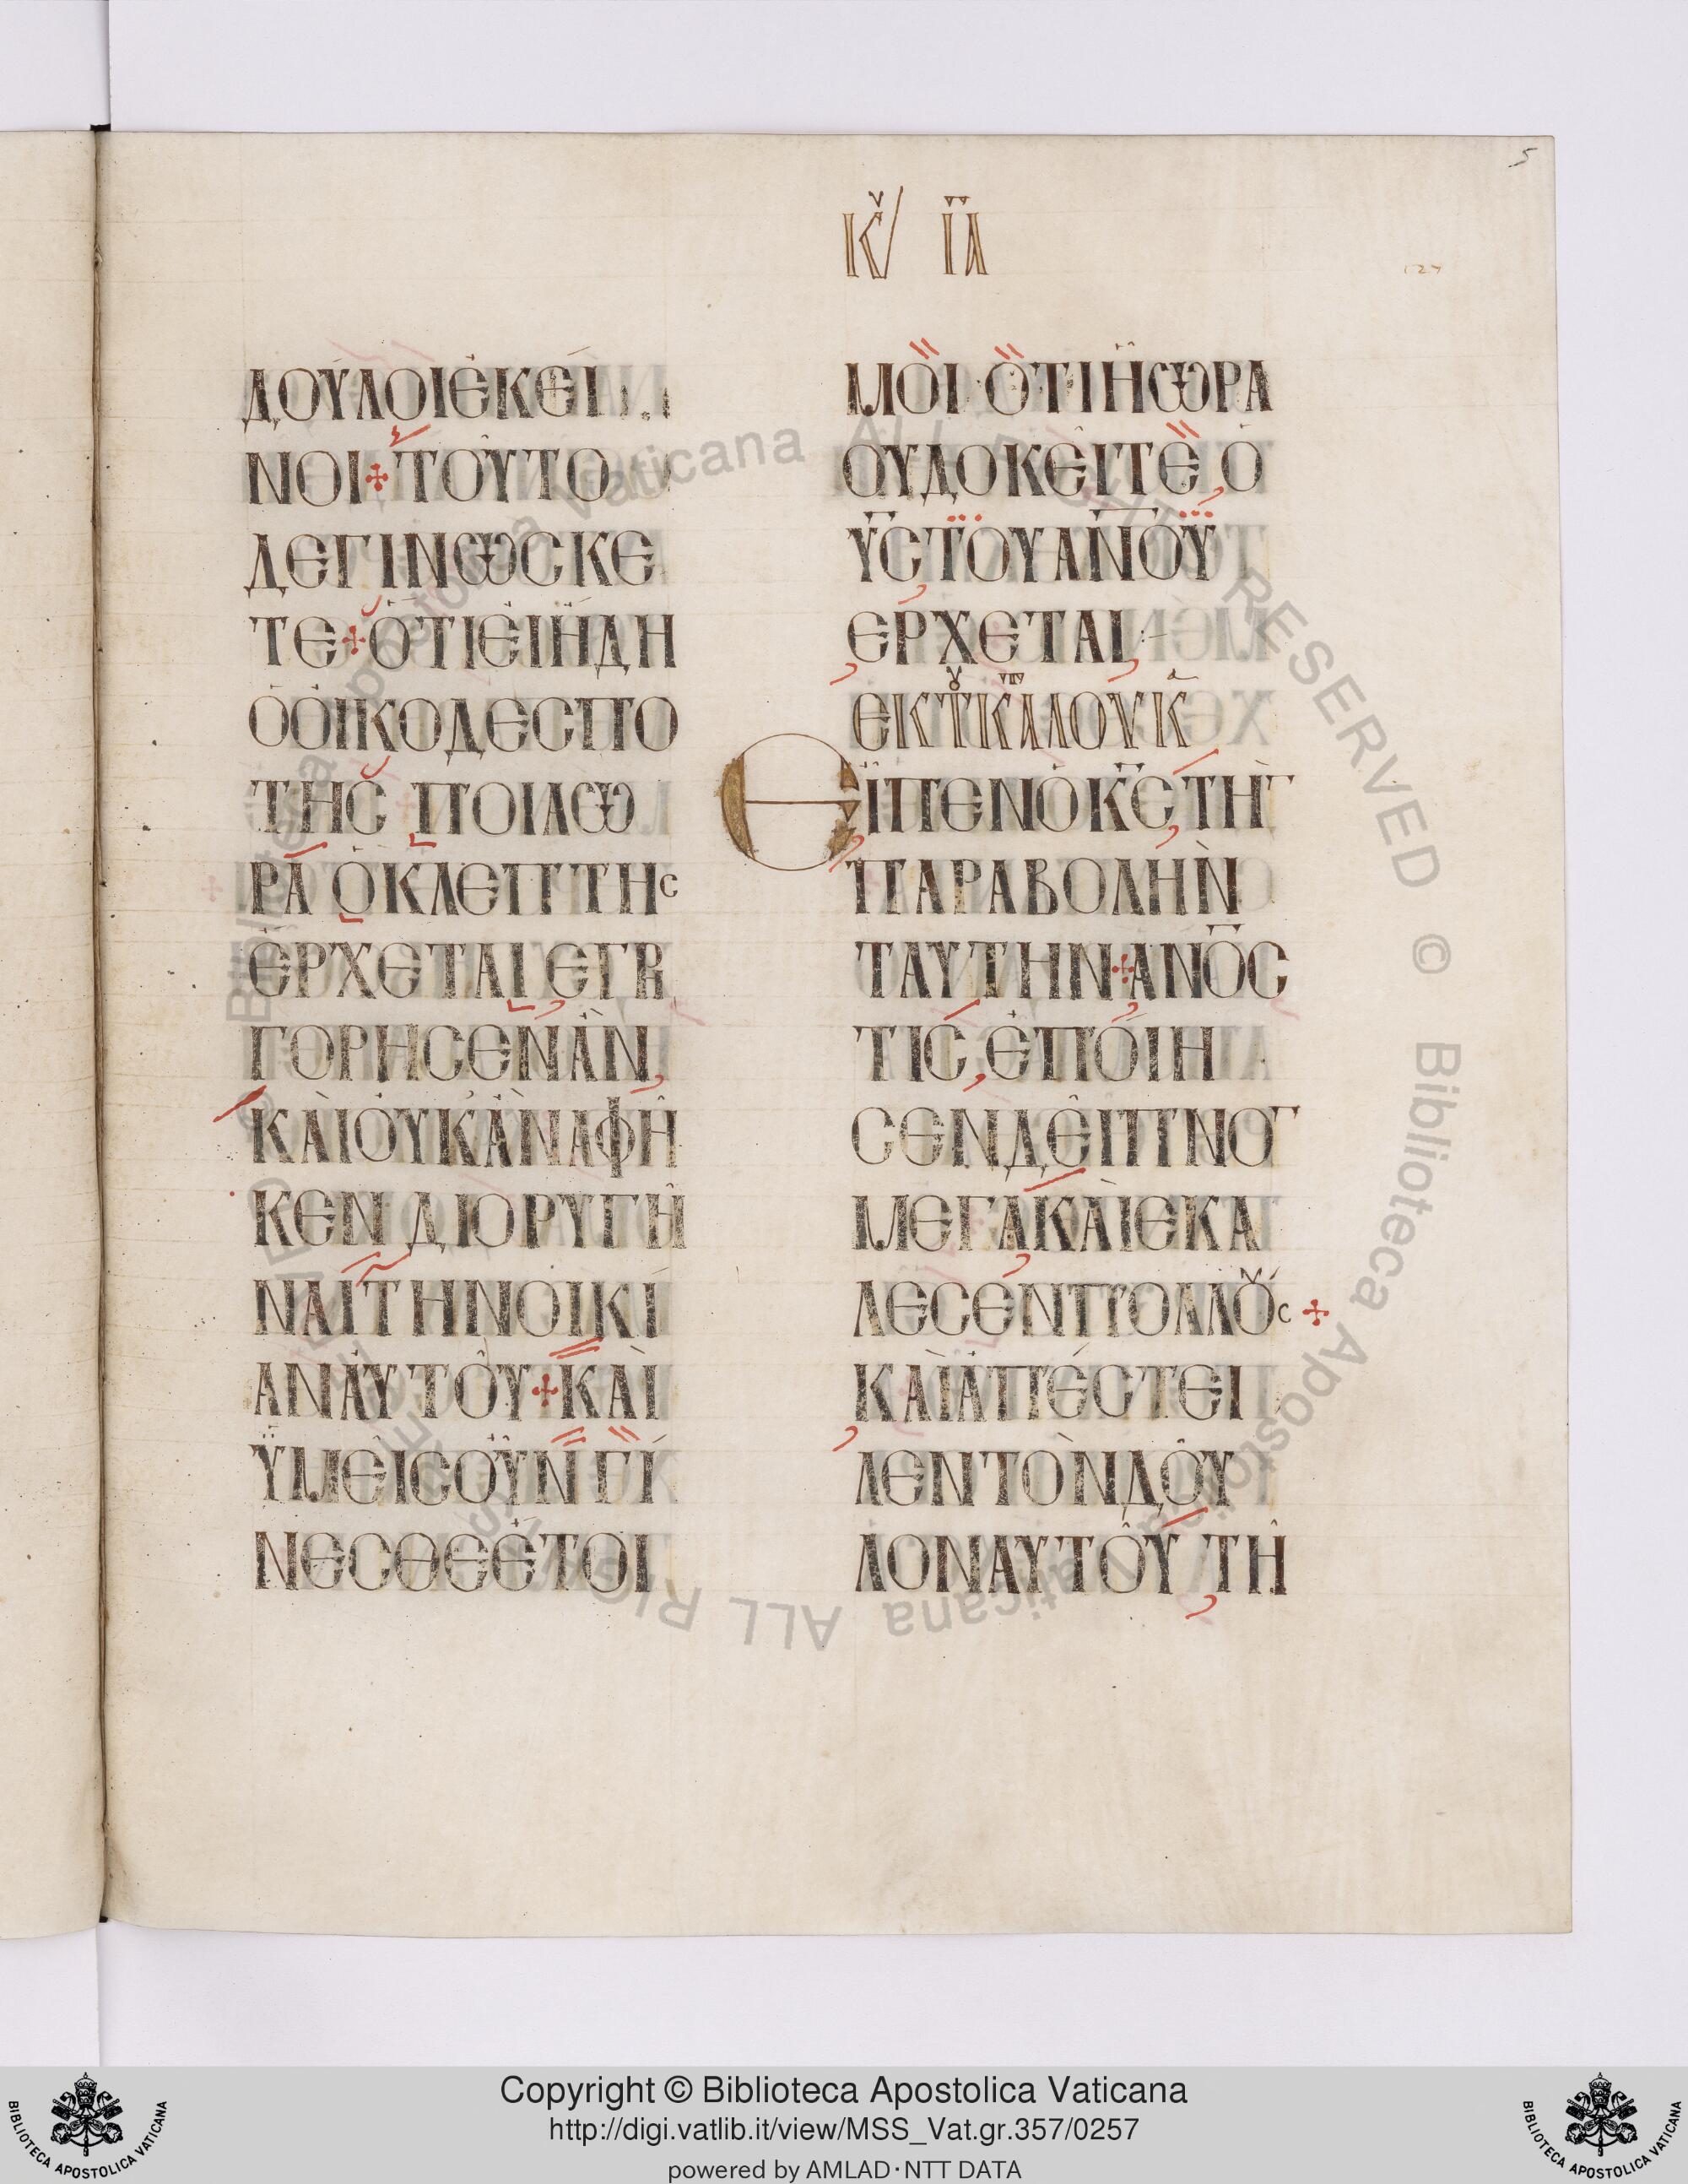 5
Κ̌/ ΙΑ
127
ΔΟΥΛΟΙΕΚΕΙ
ΝΟΙ+ΤΟΥΤΟ
ΔΕΓΙΝΩϹΚΕ
ΤΕ+ΟΤΙΕΙΗΔΗ
ΟΟΙΚΟΔΕϹΠΟ
ΤΗϹ ΠΟΙΑΩ
ΡΑ ΟΚΛΕΠΤΗϹ
ΕΡΧΕΤΑΙ ΕΓΡ
ΓΟΡΗϹΕΝΑΝ,
ΚΑΙΟΥΚΑΝΑΦΗ
ΚΕΝ ΔΙΟΡΥΓΗ
ΝΑΙΤΗΝΟΙΚΙ
ΑΝΑΥΤΟΥ+ΚΑΙ
ΥΜΕΙϹΟΥΝΓΙ
ΝΕϹΘΕΕΤΟΙ
ΜΟΙ ΟΤΙΗΩΡΑ
ΟΥΔΟΚΕΙΤΕ Ο
Υ̅Ϲ̅ΤΟΥΑ̅Ν̅Ο̅Υ̅
ΕΡΧΕΤΑΙ:-
ΕΚΤΚΑΛΟΥΚ
ΕΙΠΕΝΟΚ̅Ϲ̅ ΤΗ̅
ΠΑΡΑΒΟΛΗΝ
ΤΑΥΤΗΝ+ΑΝΟ̅Ϲ
ΤΙϹ, ΕΠΟΙΗ
ϹΕΝΔΕΙΠΝΟ̅
ΜΕΓΑΚΑΙΕΚΑ
ΛΕϹΕΝΠΟΛΛΟΥϹ+
ΚΑΙΑΠΕϹΤΕΙ
ΛΕΝΤΟΝΔΟΥ
ΛΟΝΑΥΤΟΥ ΤΗ
© Biblioteca Apostolica Vaticana ALL RIGHTS RESERVED © Biblioteca Apostolica Vaticana ALL RIGHTS RESERVED
Copyright © Biblioteca Apostolica Vaticana
http://digi.vatlib.it/view/MSS_Vat.gr.357/0257
powered by AMLAD·NTT DATA
BIBLIOTECA APOSTOLICA VATICANA
BIBLIOTECA APOSTOLICA VATICANA